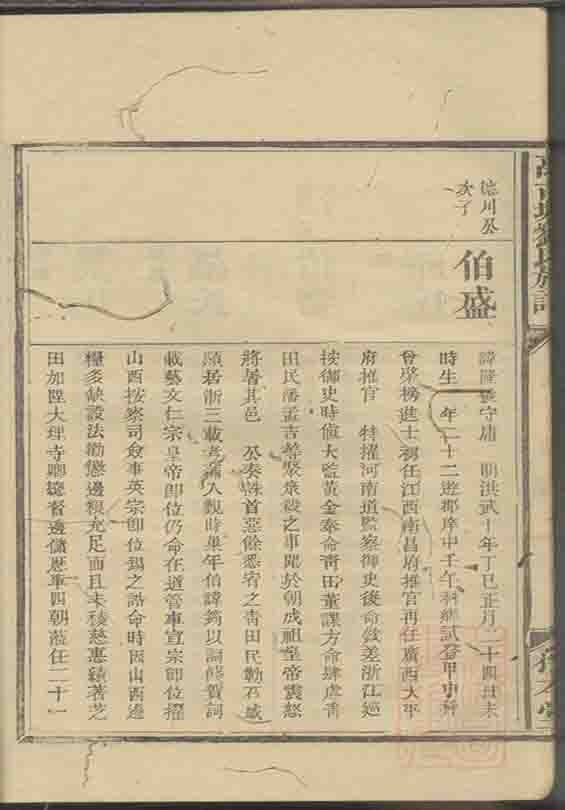 劉氏族譜
德川公
次子
伯盛
諱隆 字守庸 明洪武十年丁巳正月二十四日未
時生 年二十二遊郡庠中壬午科鄉試登甲申科
曾棨榜進士初任江西南昌府推官再任廣西太平
府推官 特擢河南道監察御史後命敘差浙江巡
按御史時值大監黃金奉命靑田董課方命肆虐靑
田民潘孟吉等聚眾殺之事聞於朝成祖皇帝震怒
將屠其邑 公奏誅首惡餘悉宥之靑田民勒石感
頌居浙三載考滿入覲時
載藝文仁宗皇帝即位仍命在道管事宣宗即位擢
山西按察司僉事英宗即位錫之誥命時因山西邊
糧多缺設法勸懲邊糧充足而且未稜慈惠績著芝
田加陞大理寺卿總督邊儲歷事四朝蒞任二十一